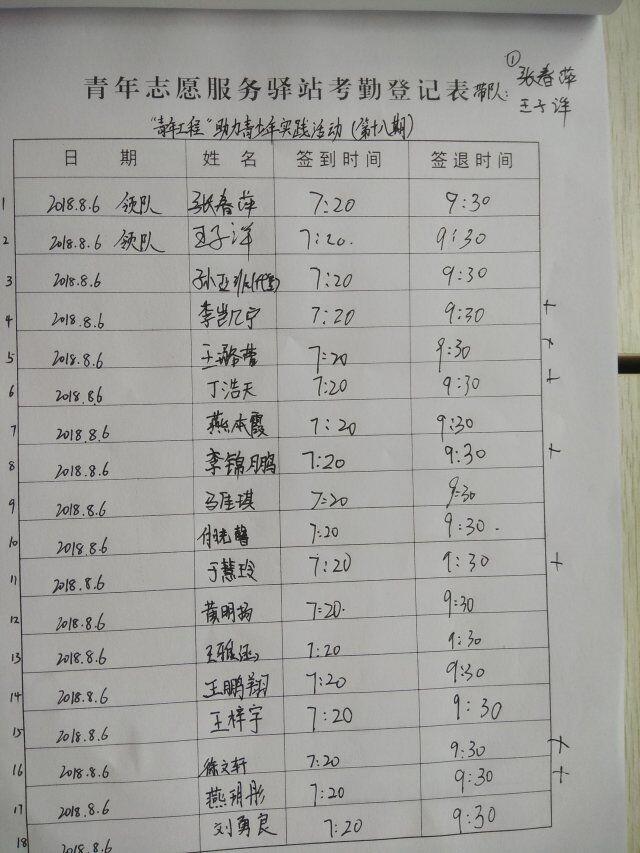 ①
青年志愿服务驿站考勤登记表 带队: 张春萍
王子洋
"青年工程"助力青少年实践活动 (第十八期)
日 期 姓 名 签到时间 签退时间
1 2018.8.6 领队 张春萍 7:20 9:30
2 2018.8.6 领队 王子洋 7:20. 9:30
3 2018.8.6 7:20 9:30
4 2018.8.6 李岂宁 7:20 9:30 +
5 2018.8.6 王璐莹 7:20 9:30 +
6 2018.8.6 丁浩天 7:20 9:30 +
7 2018.8.6 燕本霞 7:20 9:30
8 2018.8.6 李锦鹏 7:20 9:30 +
9 2018.8.6 马佳琪 7:20 9:30
10 2018.8.6 付晓馨 7:20 9:30.
11 2018.8.6 于慧玲 7:20 9:30 +
12 2018.8.6 黄明扬 7:20. 9:30
13 2018.8.6 王雅涵 7:20 9:30
14 2018.8.6 王鹏翔 7:20 9:30
15 2018.8.6 王梓宇 7:20 9:30
16 2018.8.6 徐文轩 7:20 9:30 +
17 2018.8.6 燕玥彤 7:20 9:30 +
18 2018.8.6 刘勇良 7:20 9:30